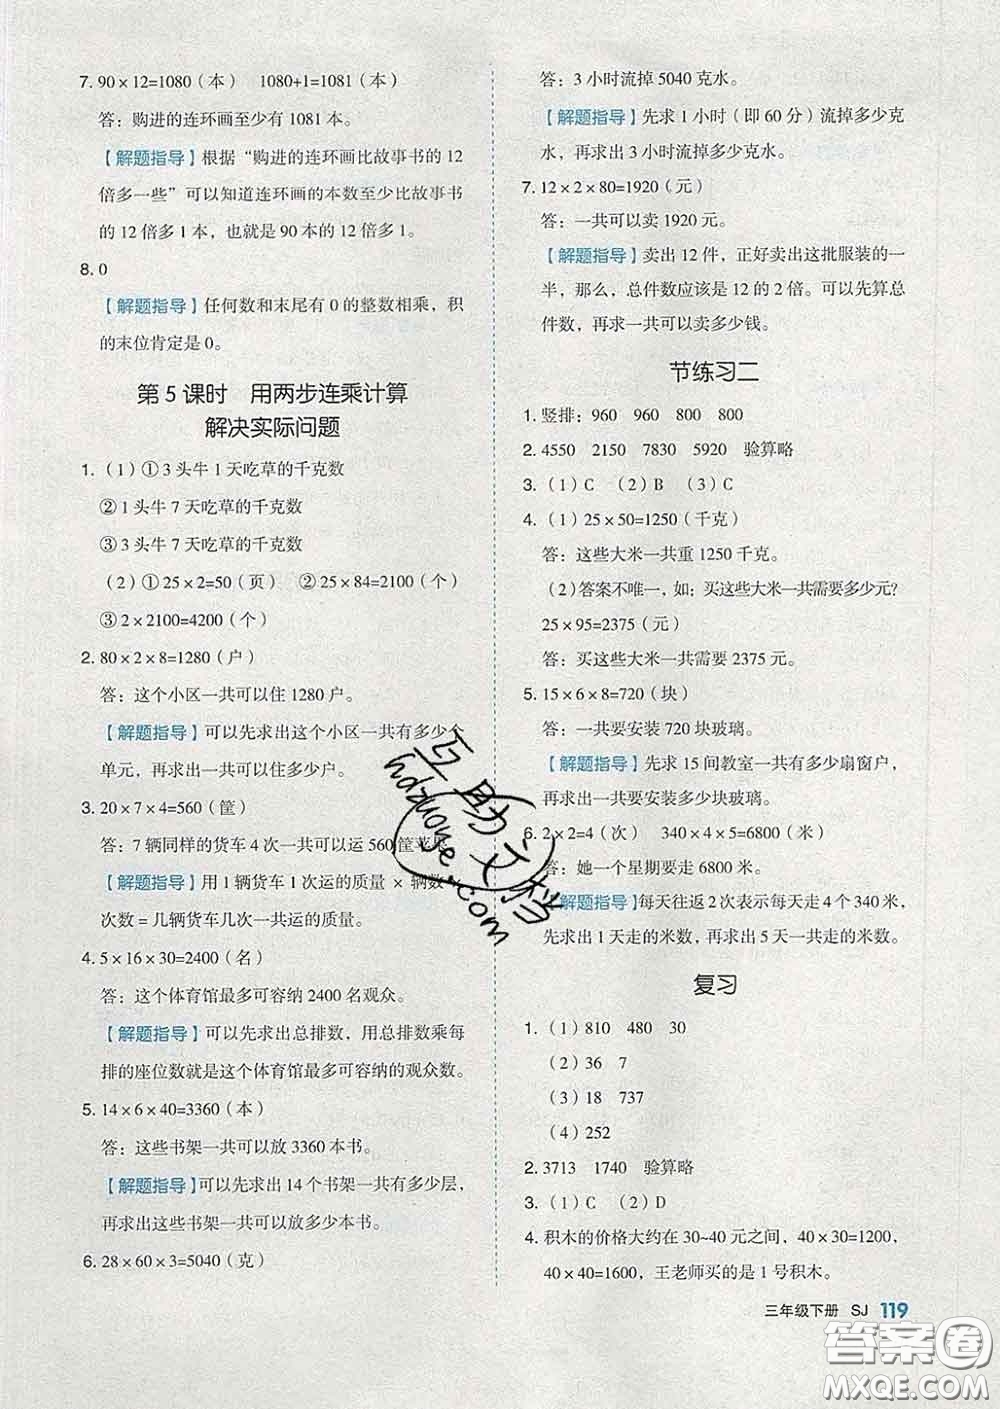 7. 90×12=1080（本）　1080+1=1081（本）
答：购进的连环画至少有 1081 本。
【解题指导】根据“购进的连环画比故事书的 12
倍多一些”可以知道连环画的本数至少比故事书
的 12 倍多 1 本，也就是 90 本的 12 倍多 1。
8. 0
【解题指导】任何数和末尾有 0 的整数相乘，积
的末位肯定是 0。
第 5 课时　用两步连乘计算
解决实际问题
1.（1）①3 头牛 1 天吃草的千克数
②1 头牛 7 天吃草的千克数
③3 头牛 7 天吃草的千克数
（2）①25×2=50（页）　②25×84=2100（个）
③2×2100=4200（个）
2. 80×2×8=1280（户）
答：这个小区一共可以住 1280 户。
【解题指导】可以先求出这个小区一共有多少个
单元，再求出一共可以住多少户。
3. 20×7×4=560（筐）
答：7 辆同样的货车 4 次一共可以运 560 筐苹果。
【解题指导】用 1 辆货车 1 次运的质量 × 辆数 ×
次数 = 几辆货车几次一共运的质量。
4. 5×16×30=2400（名）
答：这个体育馆最多可容纳 2400 名观众。
【解题指导】可以先求出总排数，用总排数乘每
排的座位数就是这个体育馆最多可容纳的观众数。
5. 14×6×40=3360（本）
答：这些书架一共可以放 3360 本书。
【解题指导】可以先求出 14 个书架一共有多少层，
再求出这些书架一共可以放多少本书。
6. 28×60×3=5040（克）
答：3 小时流掉 5040 克水。
【解题指导】先求 1 小时（即 60 分）流掉多少克
水，再求出 3 小时流掉多少克水。
7. 12×2×80=1920（元）
答：一共可以卖 1920 元。
【解题指导】卖出 12 件，正好卖出这批服装的一
半，那么，总件数应该是 12 的 2 倍。可以先算总
件数，再求一共可以卖多少钱。
节练习二
1. 竖排：960　960　800　800
2. 4550　2150　7830　5920　验算略
3.（1）C　（2）B　（3）C
4.（1）25×50=1250（千克）
答：这些大米一共重 1250 千克。
（2）答案不唯一，如：买这些大米一共需要多少元?
25×95=2375（元）
答：买这些大米一共需要 2375 元。
5. 15×6×8=720（块）
答：一共要安装 720 块玻璃。
【解题指导】先求 15 间教室一共有多少扇窗户，
再求出一共要安装多少块玻璃。
6. 2×2=4（次）　340×4×5=6800（米）
答：她一个星期要走 6800 米。
【解题指导】每天往返 2 次表示每天走 4 个 340 米，
先求出 1 天走的米数，再求出 5 天一共走的米数。
复习
1.（1）810　480　30
（2）36　7
（3）18　737
（4）252
2. 3713　1740　验算略
3.（1）C　（2）D
4. 积木的价格大约在 30~40 元之间，40×30=1200，
40×40=1600，王老师买的是 1 号积木。
三年级下册　SJ　119
互助文档
hdzuoye.com
答案圈
MXQE.COM